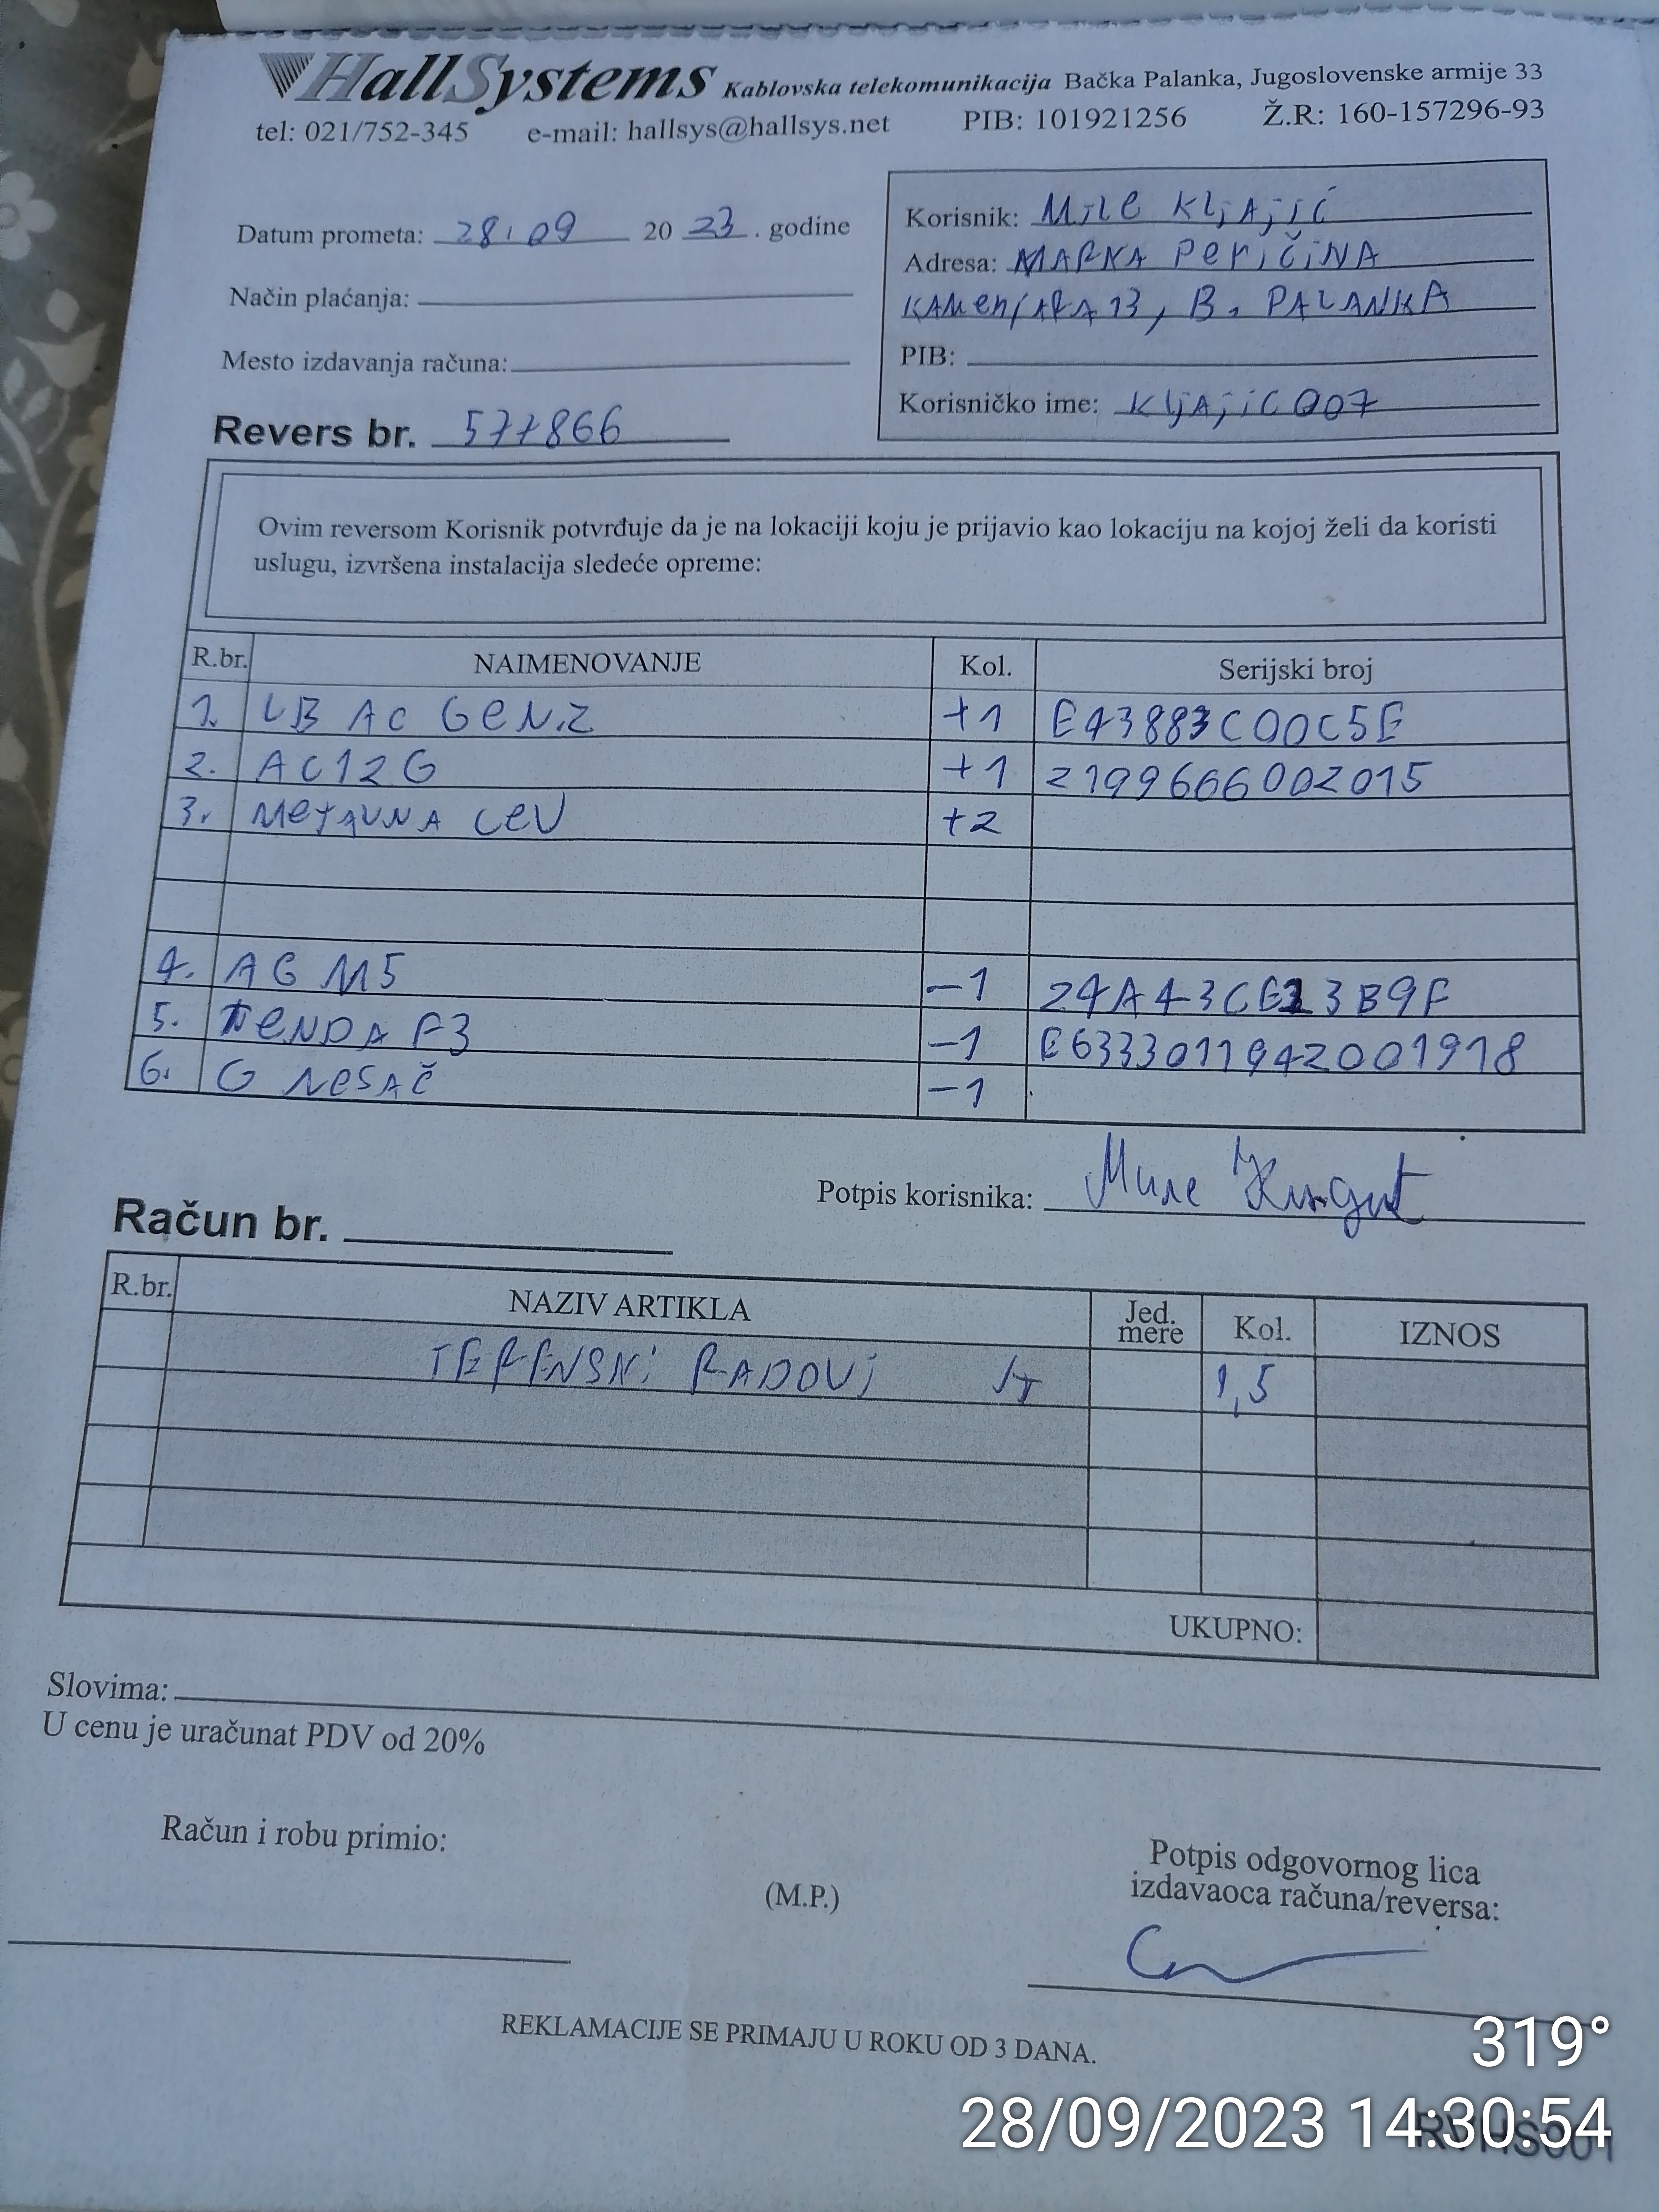 HallSystems Kablovska telekomunikacija Bačka Palanka, Jugoslovenske armije 33
tel: 021/752-345 e-mail: hallsys@hallsys.net PIB: 101921256 Ž.R: 160-157296-93
Datum prometa: 28.09 20 23 . godine
Način plaćanja:
Mesto izdavanja računa:
Revers br. 577866
Korisnik: Mile Kljajić
Adresa: MARKA PeričiNA
KAMenjARA 13, B. PALANKA
PIB:
Korisničko ime: KljAjiC007
Ovim reversom Korisnik potvrđuje da je na lokaciji koju je prijavio kao lokaciju na kojoj želi da koristi
uslugu, izvršena instalacija sledeće opreme:
R.br. NAIMENOVANJE Kol. Serijski broj
1. LB AC GEN2 +1 E43883C00C5E
2. AC12G +1 2199666002015
3. MeTALNA CeV +2
4. AG M5 -1 24A43CE23B9F
5. TeNDA F3 -1 E6333011942001918
6. G NOSAČ -1
Potpis korisnika:
Račun br.
R.br. NAZIV ARTIKLA Jed. mere Kol. IZNOS
TERENSKI RADOVI 1,5
UKUPNO:
Slovima:
U cenu je uračunat PDV od 20%
Račun i robu primio:
(M.P.)
Potpis odgovornog lica
izdavaoca računa/reversa:
REKLAMACIJE SE PRIMAJU U ROKU OD 3 DANA.
319°
28/09/2023 14:30:54